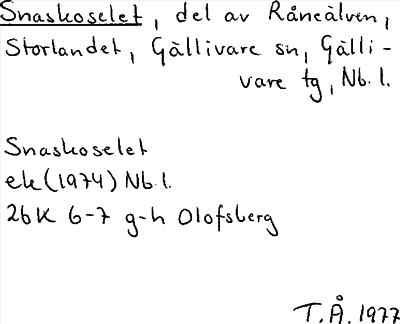 Snaskoselet, del av Råneälven,
Storlandet, Gällivare sn, Gälli-
vare tg, Nb.l.
Snaskoselet
ek (1974) Nb.l.
26K 6-7 g-h Olofsberg
T.Å. 1977